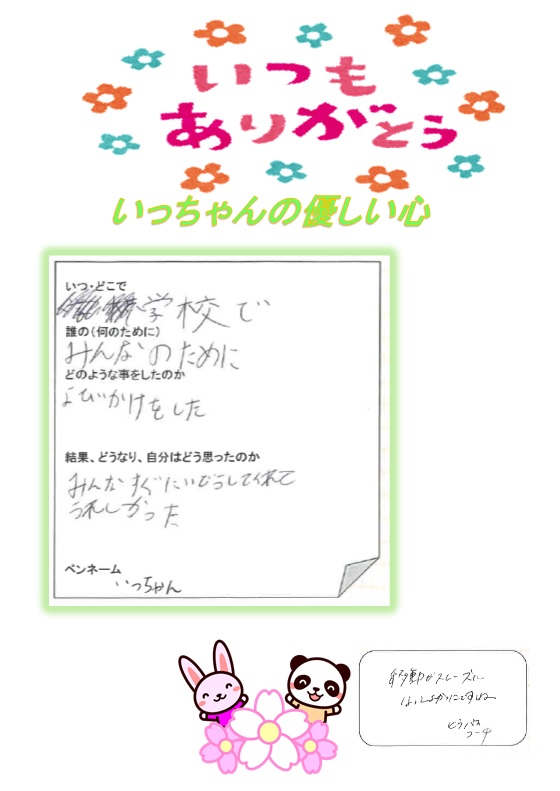 いつも
ありがとう
いっちゃんの優しい心
いつ・どこで
学校で
誰の(何のために)
みんなのために
どのような事をしたのか
よびかけをした
結果、どうなり、自分はどう思ったのか
みんなすぐにいどうしてくれて
うれしかった
ペンネーム
いっちゃん
移動がスムーズに
コーチ